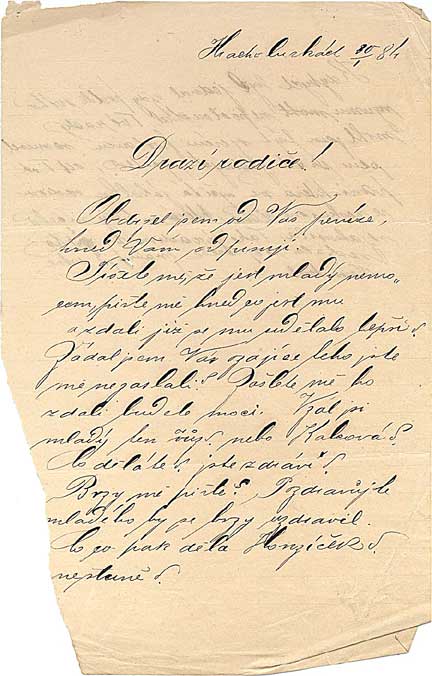 30/1 84
Drazí rodiče!
Obdržel jsem od Vás peníze,
hned Vám odpisuji.
Píšete mě, že jest mladý nemo„
cen, pište mě hned co jest mu
a zdali již se mu udělalo lepší?
Žádal jsem Vás o zajíce toho jste
mě nezaslali? Pošlete mě ho
zdali budete moci. Vzal si
mladý ten nebo
Co děláte? jste zdrávi?
Brzy mě pište? Pozdravujte
mladého by se brzy uzdravil.
Co pak dělá Honzíček?
nestůně?